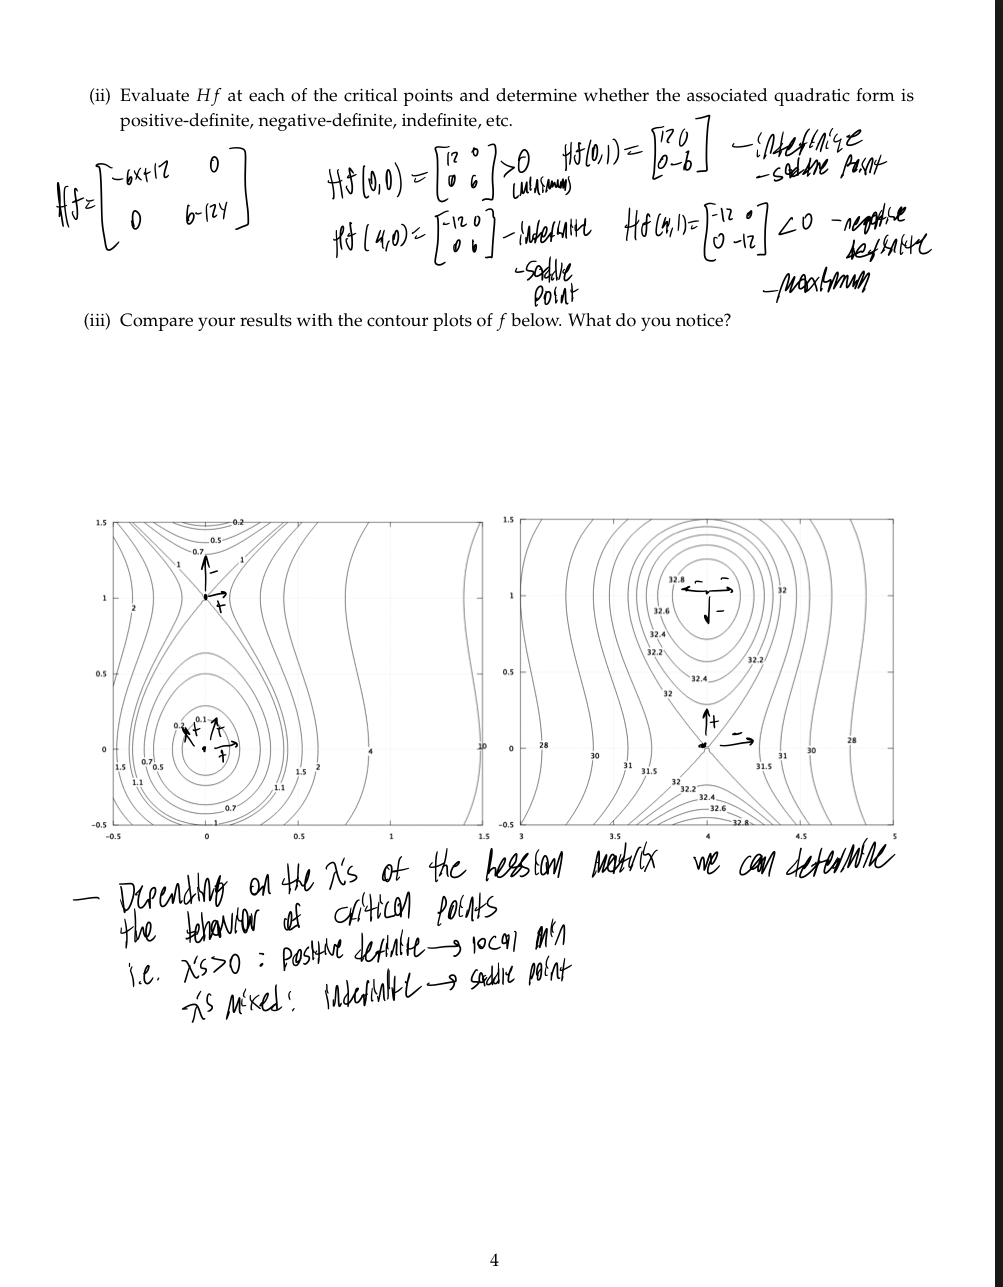 (ii) Evaluate Hf at each of the critical points and determine whether the associated quadratic form is
positive-definite, negative-definite, indefinite, etc.
Hf = [-6x+12 0
0 6-12y]
Hf(0,0) = [12 0
0 6] >0
(minimum)
Hf(0,1) = [12 0
0 -6]
- indefinite
- saddle point
Hf(4,0) = [-12 0
0 6] - indefinite
- saddle
point
Hf(4,1) = [-12 0
0 -12] <0 - negative
definite
- maximum
(iii) Compare your results with the contour plots of f below. What do you notice?
1.5
0.2
0.5
0.7
1
1
-
1
+
2
0.5
0.2
0.1
+
+
+
0
1.5
0.7
0.5
1.1
1.5
2
1.1
0.7
1
4
10
-0.5
-0.5
0
0.5
1
1.5
1.5
32.8
- -
-
32
1
32.6
32.4
32.2
32.2
0.5
32.4
32
+
-
0
28
30
31
31.5
31.5
31
30
28
32
32.2
32.4
32.6
32.8
-0.5
3
3.5
4
4.5
5
— Depending on the λ's of the hessian matrix we can determine
the behavior of critical points
i.e. λ's>0 : positive definite → local min
λ's mixed: indefinite → saddle point
4